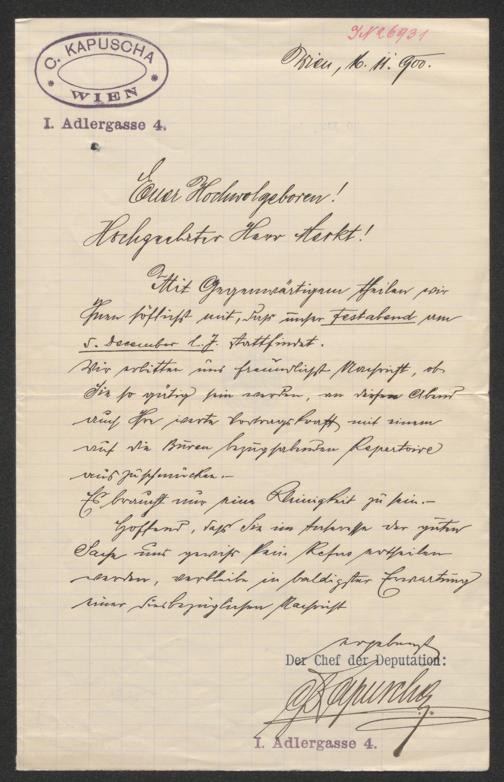 C. KAPUSCHA
* WIEN *
I. Adlergasse 4.
IN 26931
Wien, 16. 11. 900.
Euer Hochwolgeboren!
Hochgeehrter Herr Markt!
Mit Gegenwärtigem theilen wir
Ihnen höflichst mit, daß unser Festabend am
5. December l. J. stattfindet.
Wir erbitten uns freundlichst Nachricht, ob
Sie so gütig sein werden, an diesem Abend
auch Ihre werte Vortragskraft mit einem
auf die Buren bezughabenden Repertoire
auszuschmücken.-
Es braucht nur eine Kleinigkeit zu sein.-
Hoffend, daß Sie im Interesse der guten
Sache uns gewiß kein Refus ertheilen
werden, verbleibe in baldigster Erwartung
einer diesbezüglichen Nachricht
ergebenst
Der Chef der Deputation:
C. Kapuscha
I. Adlergasse 4.